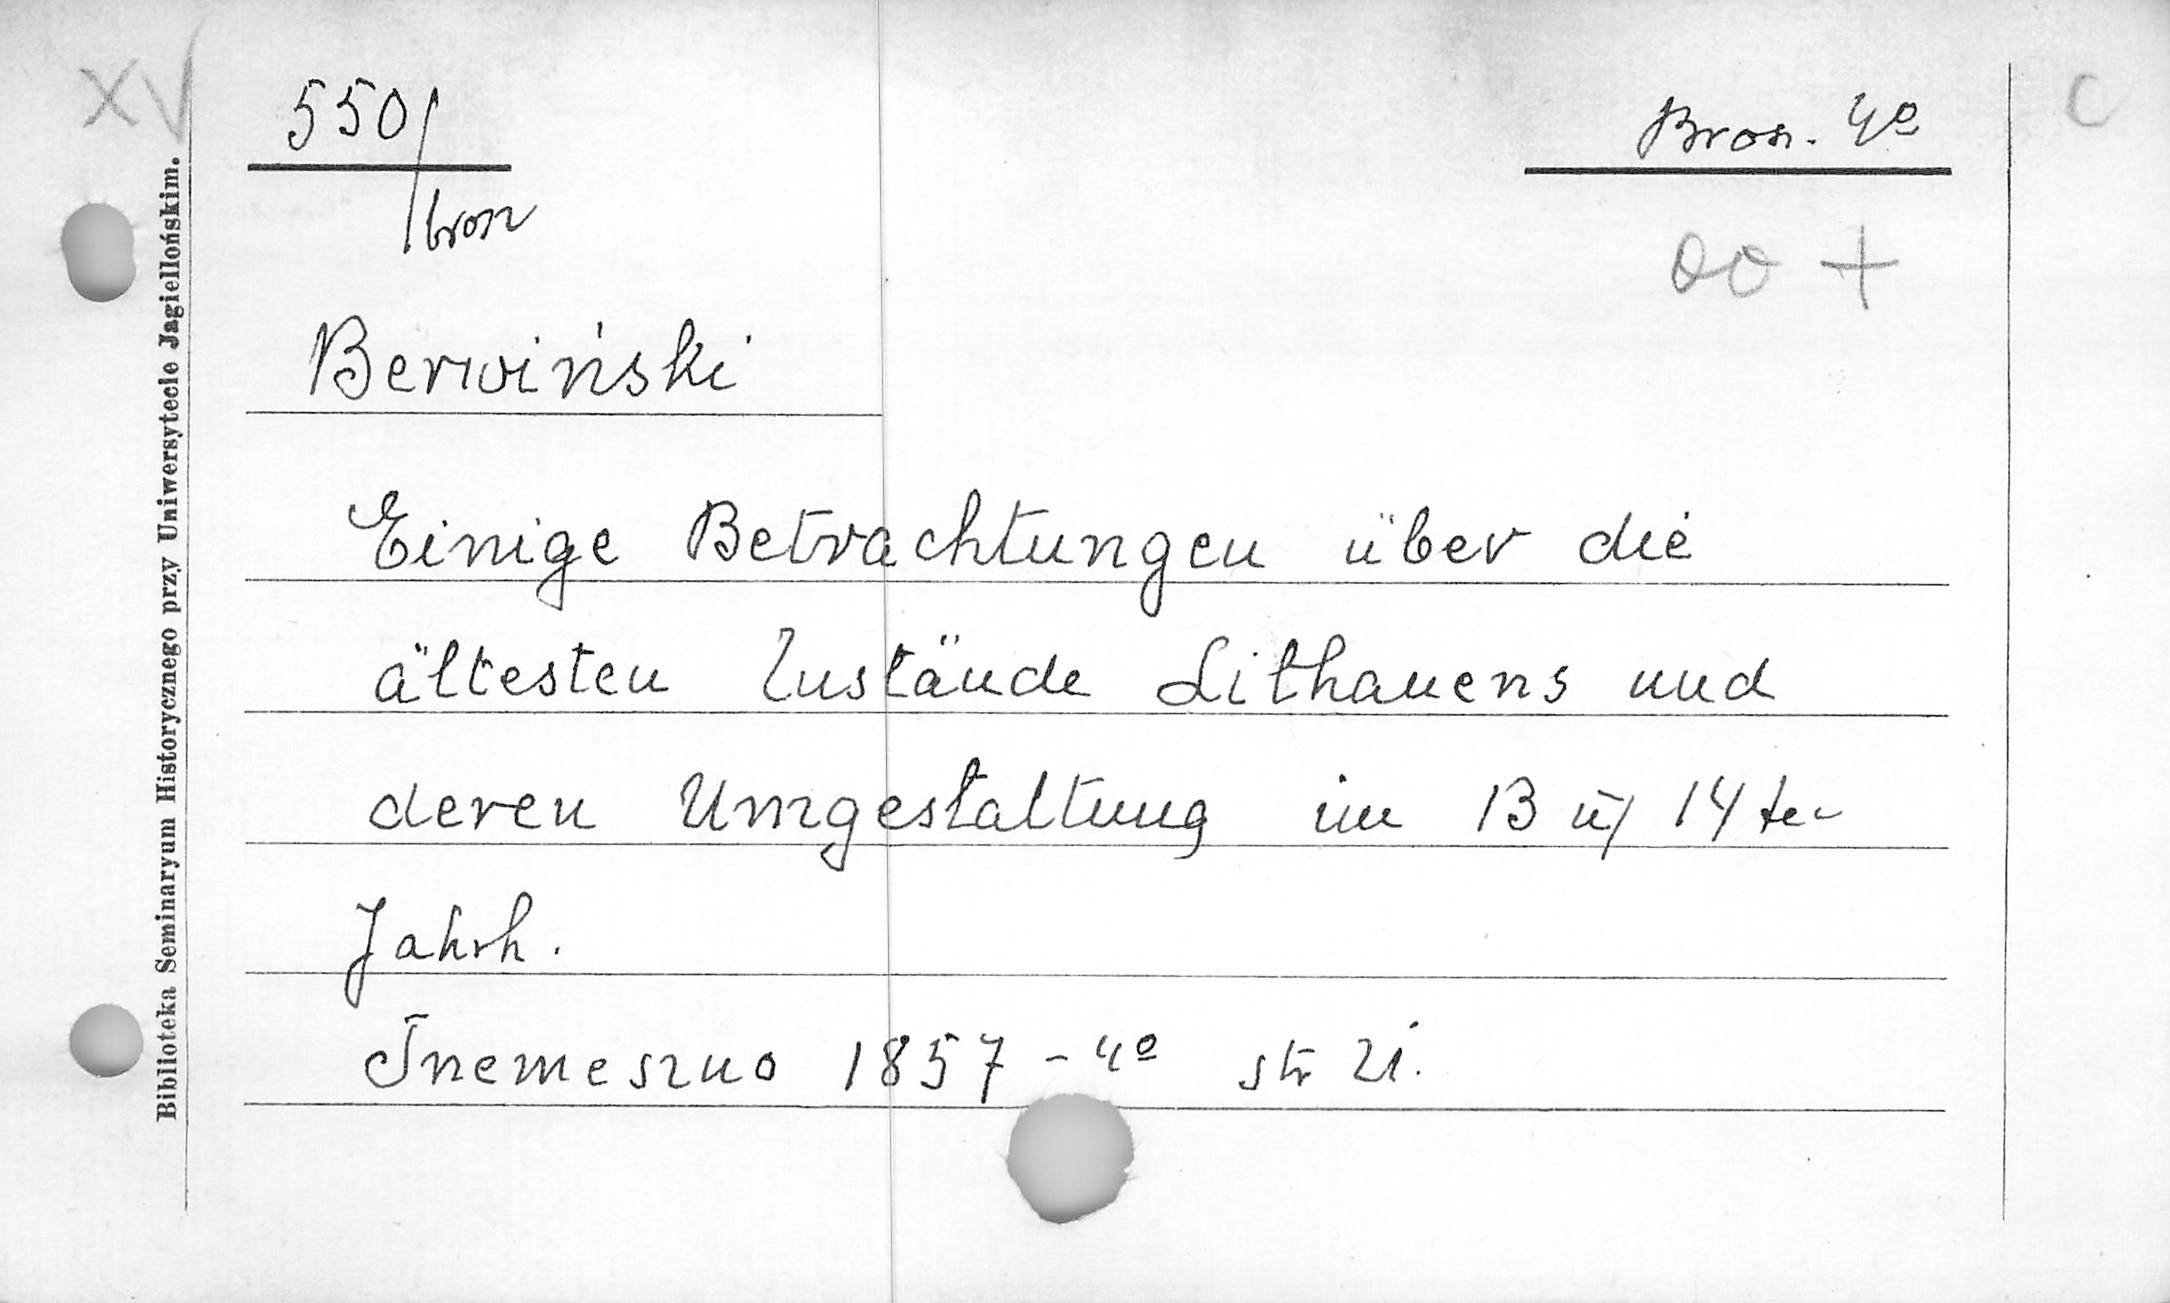 XV
550/
bron
Bron. 4º
C
00 +
Berwiński
Einige Betrachtungen über die
ältesten Zustände Lithauens und
deren Umgestaltung im 13 u/ 14 ten
Jahrh.
Tremeszno 1857 - 4º str 21.
Biblioteka Seminaryum Historycznego przy Uniwersytecie Jagiellońskim.